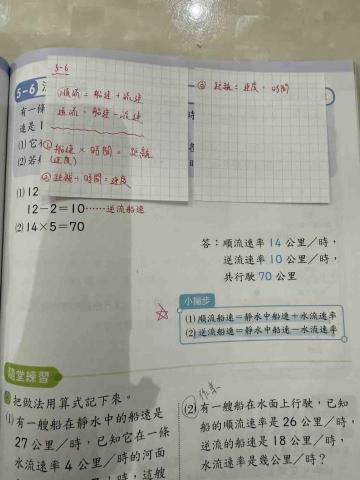 5-6
①順流=船速+流速
逆流=船速-流速
①船速×時間=距離
(速度)
②距離÷時間=速度
③距離÷速度=時間
5-6
有一條
速是1
(1)它
(2)若
(1)12
12-2=10……逆流船速
(2)14×5=70
答:順流速率14公里/時,
逆流速率10公里/時,
共行駛70公里
小撇步
(1)順流船速=靜水中船速+水流速率
(2)逆流船速=靜水中船速-水流速率
隨堂練習
把做法用算式記下來。
(1)有一艘船在靜水中的船速是
27公里/時,已知它在一條
水流速率4公里/時的河面
上行駛
時,這艘
作業
(2)有一艘船在水面上行駛,已知
船的順流速率是26公里/時,
逆流的船速是18公里/時,
水流速率是幾公里/時?